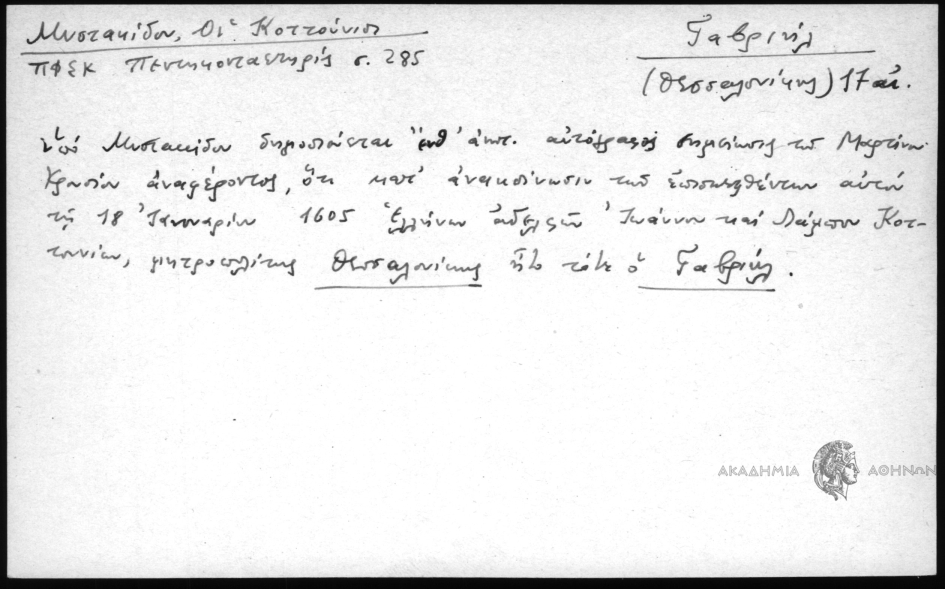 Μυστακίδου, Οἱ Κοττούνιοι
ΠΦΣΚ Πεντηκονταετηρίς σ. 285
Γαβριήλ
(Θεσσαλονίκης) 17 αἰ.
Ὑπό Μυστακίδου δημοσιεύεται αὐτόγραφος σημείωσις τοῦ Μαρτίνου
Κρουσίου ἀναφέροντος, ὅτι κατ' ἀνακοίνωσιν τῶν ἐπισκεφθέντων αὐτόν
τῇ 18 Ἰανουαρίου 1605 Ἑλλήνων ἀδελφῶν Ἰωάννου καί Λάμπου Κοτ-
τουνίων, μητροπολίτης Θεσσαλονίκης ἦτο τότε ὁ Γαβριήλ.
ΑΚΑΔΗΜΙΑ ΑΘΗΝΩΝ